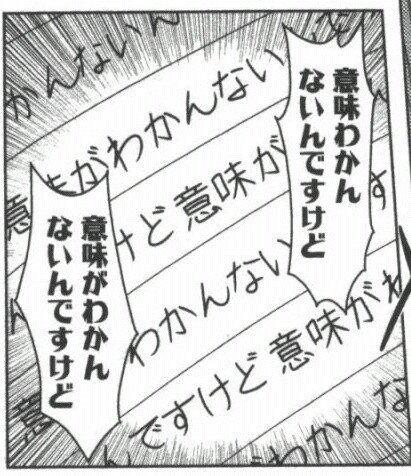 意味わかん
ないんですけど
意味がわかん
ないんですけど
かんないん
意味がわかんない
けど意味が
す
わかんない
ですけど意味がわ
意
わかんな